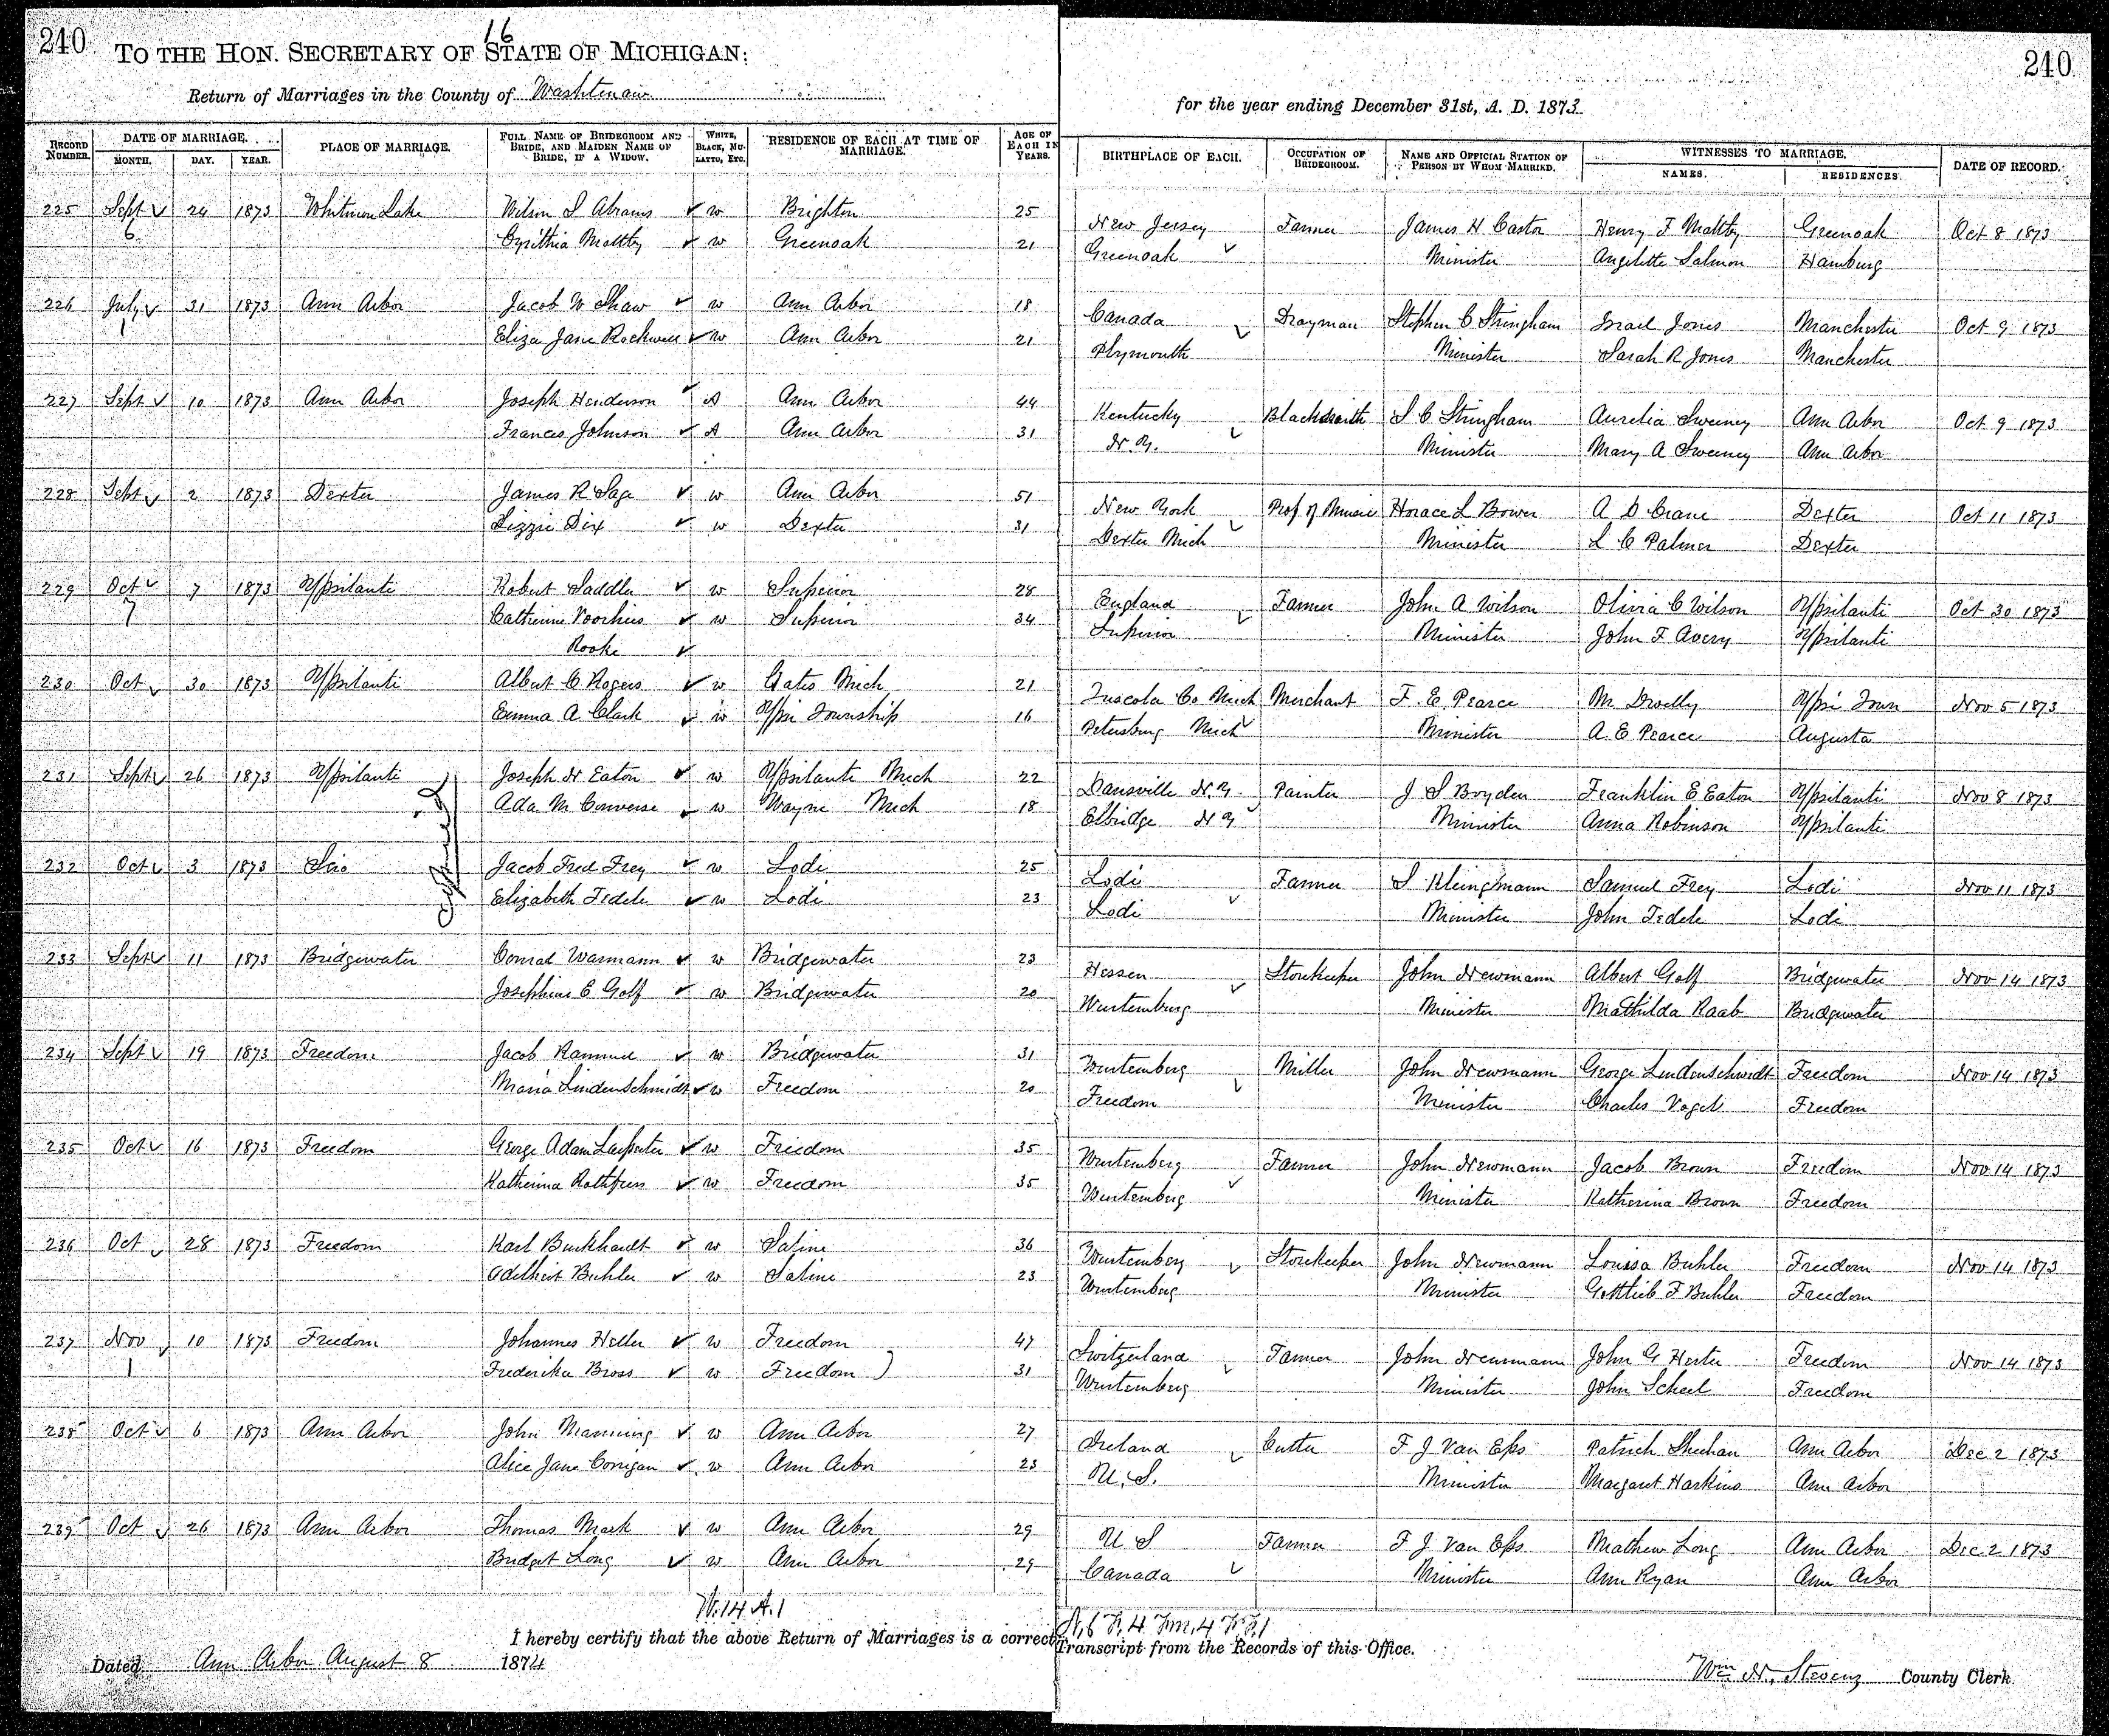 240
16
TO THE HON. SECRETARY OF STATE OF MICHIGAN:
240
Return of Marriages in the County of Washtenaw
for the year ending December 31st, A. D. 1873
RECORD NUMBER. DATE OF MARRIAGE. MONTH. DAY. YEAR. PLACE OF MARRIAGE. FULL NAME OF BRIDEGROOM AND BRIDE, AND MAIDEN NAME OF BRIDE, IF A WIDOW. WHITE, BLACK, MULATTO, ETC. RESIDENCE OF EACH AT TIME OF MARRIAGE. AGE OF EACH IN YEARS. BIRTHPLACE OF EACH. OCCUPATION OF BRIDEGROOM. NAME AND OFFICIAL STATION OF PERSON BY WHOM MARRIED. WITNESSES TO MARRIAGE. NAMES. RESIDENCES. DATE OF RECORD.
225 Sept 24 1873 Whitmore Lake Wilson S Abrams w Brighton 25 New Jersey Farmer James H Castor Henry F Maltby Greenoak Oct 8 1873
6 Cynthia Maltby w Greenoak 21 Greenoak Minister Angelette Salmon Hamburg
226 July 31 1873 Ann Arbor Jacob W Shaw w Ann Arbor 18 Canada Drayman Stephen C Stringham Israel Jones Manchester Oct 9 1873
1 Eliza Jane Rockwell w Ann Arbor 21 Plymouth Minister Sarah R Jones Manchester
227 Sept 10 1873 Ann Arbor Joseph Henderson A Ann Arbor 44 Kentucky Blacksmith S C Stringham Aurelia Sweeney Ann Arbor Oct 9 1873
Frances Johnson A Ann Arbor 31 N.Y. Minister Mary A Sweeney Ann Arbor
228 Sept 2 1873 Dexter James R Sage w Ann Arbor 51 New York Prof of Music Horace L Bower A D Crane Dexter Oct 11 1873
Lizzie Dix w Dexter 31 Dexter Mich Minister L C Palmer Dexter
229 Oct 7 1873 Ypsilanti Robert Saddler w Superior 28 England Farmer John A Wilson Olivia C Wilson Ypsilanti Oct 30 1873
7 Catherine Voorhies w Superior 34 Superior Minister John F Avery Ypsilanti
Rooke
230 Oct 30 1873 Ypsilanti Albert C Rogers w Gates Mich 21 Tuscola Co Mich Merchant F. E. Pearce M Dwelly Ypsi Town Nov 5 1873
Emma A Clark w Ypsi Township 16 Petersburg Mich Minister A E Pearce Augusta
231 Sept 26 1873 Ypsilanti Joseph N Eaton w Ypsilanti Mich 22 Dansville N.Y. Painter J S Boyden Franklin E Eaton Ypsilanti Nov 8 1873
Ada M Converse w Wayne Mich 18 Elbridge N Y Minister Anna Robinson Ypsilanti
232 Oct 3 1873 Scio Jacob Fred Frey w Lodi 25 Lodi Farmer S Klingmann Samuel Frey Lodi Nov 11 1873
Elizabeth Fedele w Lodi 23 Lodi Minister John Fedele Lodi
233 Sept 11 1873 Bridgewater Conrad Warmann w Bridgewater 23 Hessen Storekeeper John Newmann Albert Golf Bridgewater Nov 14 1873
Josephine C Golf w Bridgewater 20 Wurtemburg Minister Mathilda Raab Bridgewater
234 Sept 19 1873 Freedom Jacob Rammel w Bridgewater 31 Wurtemberg Miller John Newmann George Lindenschmidt Freedom Nov 14 1873
Maria Lindenschmidt w Freedom 20 Freedom Minister Charles Vogel Freedom
235 Oct 16 1873 Freedom George Adam w Freedom 35 Wurtemberg Farmer John Newmann Jacob Brown Freedom Nov 14 1873
Katherina Rothfuss w Freedom 35 Wurtemberg Minister Katherina Brown Freedom
236 Oct 28 1873 Freedom Karl Burkhardt w Saline 36 Wurtemberg Storekeeper John Newmann Louisa Buhler Freedom Nov 14 1873
Adelheit Buhler w Saline 23 Wurtemberg Minister Gottlieb F Buhler Freedom
237 Nov 10 1873 Freedom Johannes Heller w Freedom 47 Switzerland Farmer John Newmann John G Freedom Nov 14 1873
1 Frederika Bross w Freedom 31 Wurtemberg Minister John Scheel Freedom
238 Oct 6 1873 Ann Arbor John Manning w Ann Arbor 27 Ireland Cutter F J Van Eps Patrick Sheehan Ann Arbor Dec 2 1873
Alice Jane Corrigan w Ann Arbor 23 U.S. Minister Margaret Harkins Ann Arbor
239 Oct 26 1873 Ann Arbor Thomas Mark w Ann Arbor 29 U S Farmer F J Van Eps Mathew Long Ann Arbor Dec 2 1873
Bridget Long w Ann Arbor 29 Canada Minister Ann Ryan Ann Arbor
W.14 A.1
I hereby certify that the above Return of Marriages is a correct Transcript from the Records of this Office.
Dated Ann Arbor August 8 1874
Wm N. Stevens County Clerk